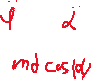 φ α
md cos(α)